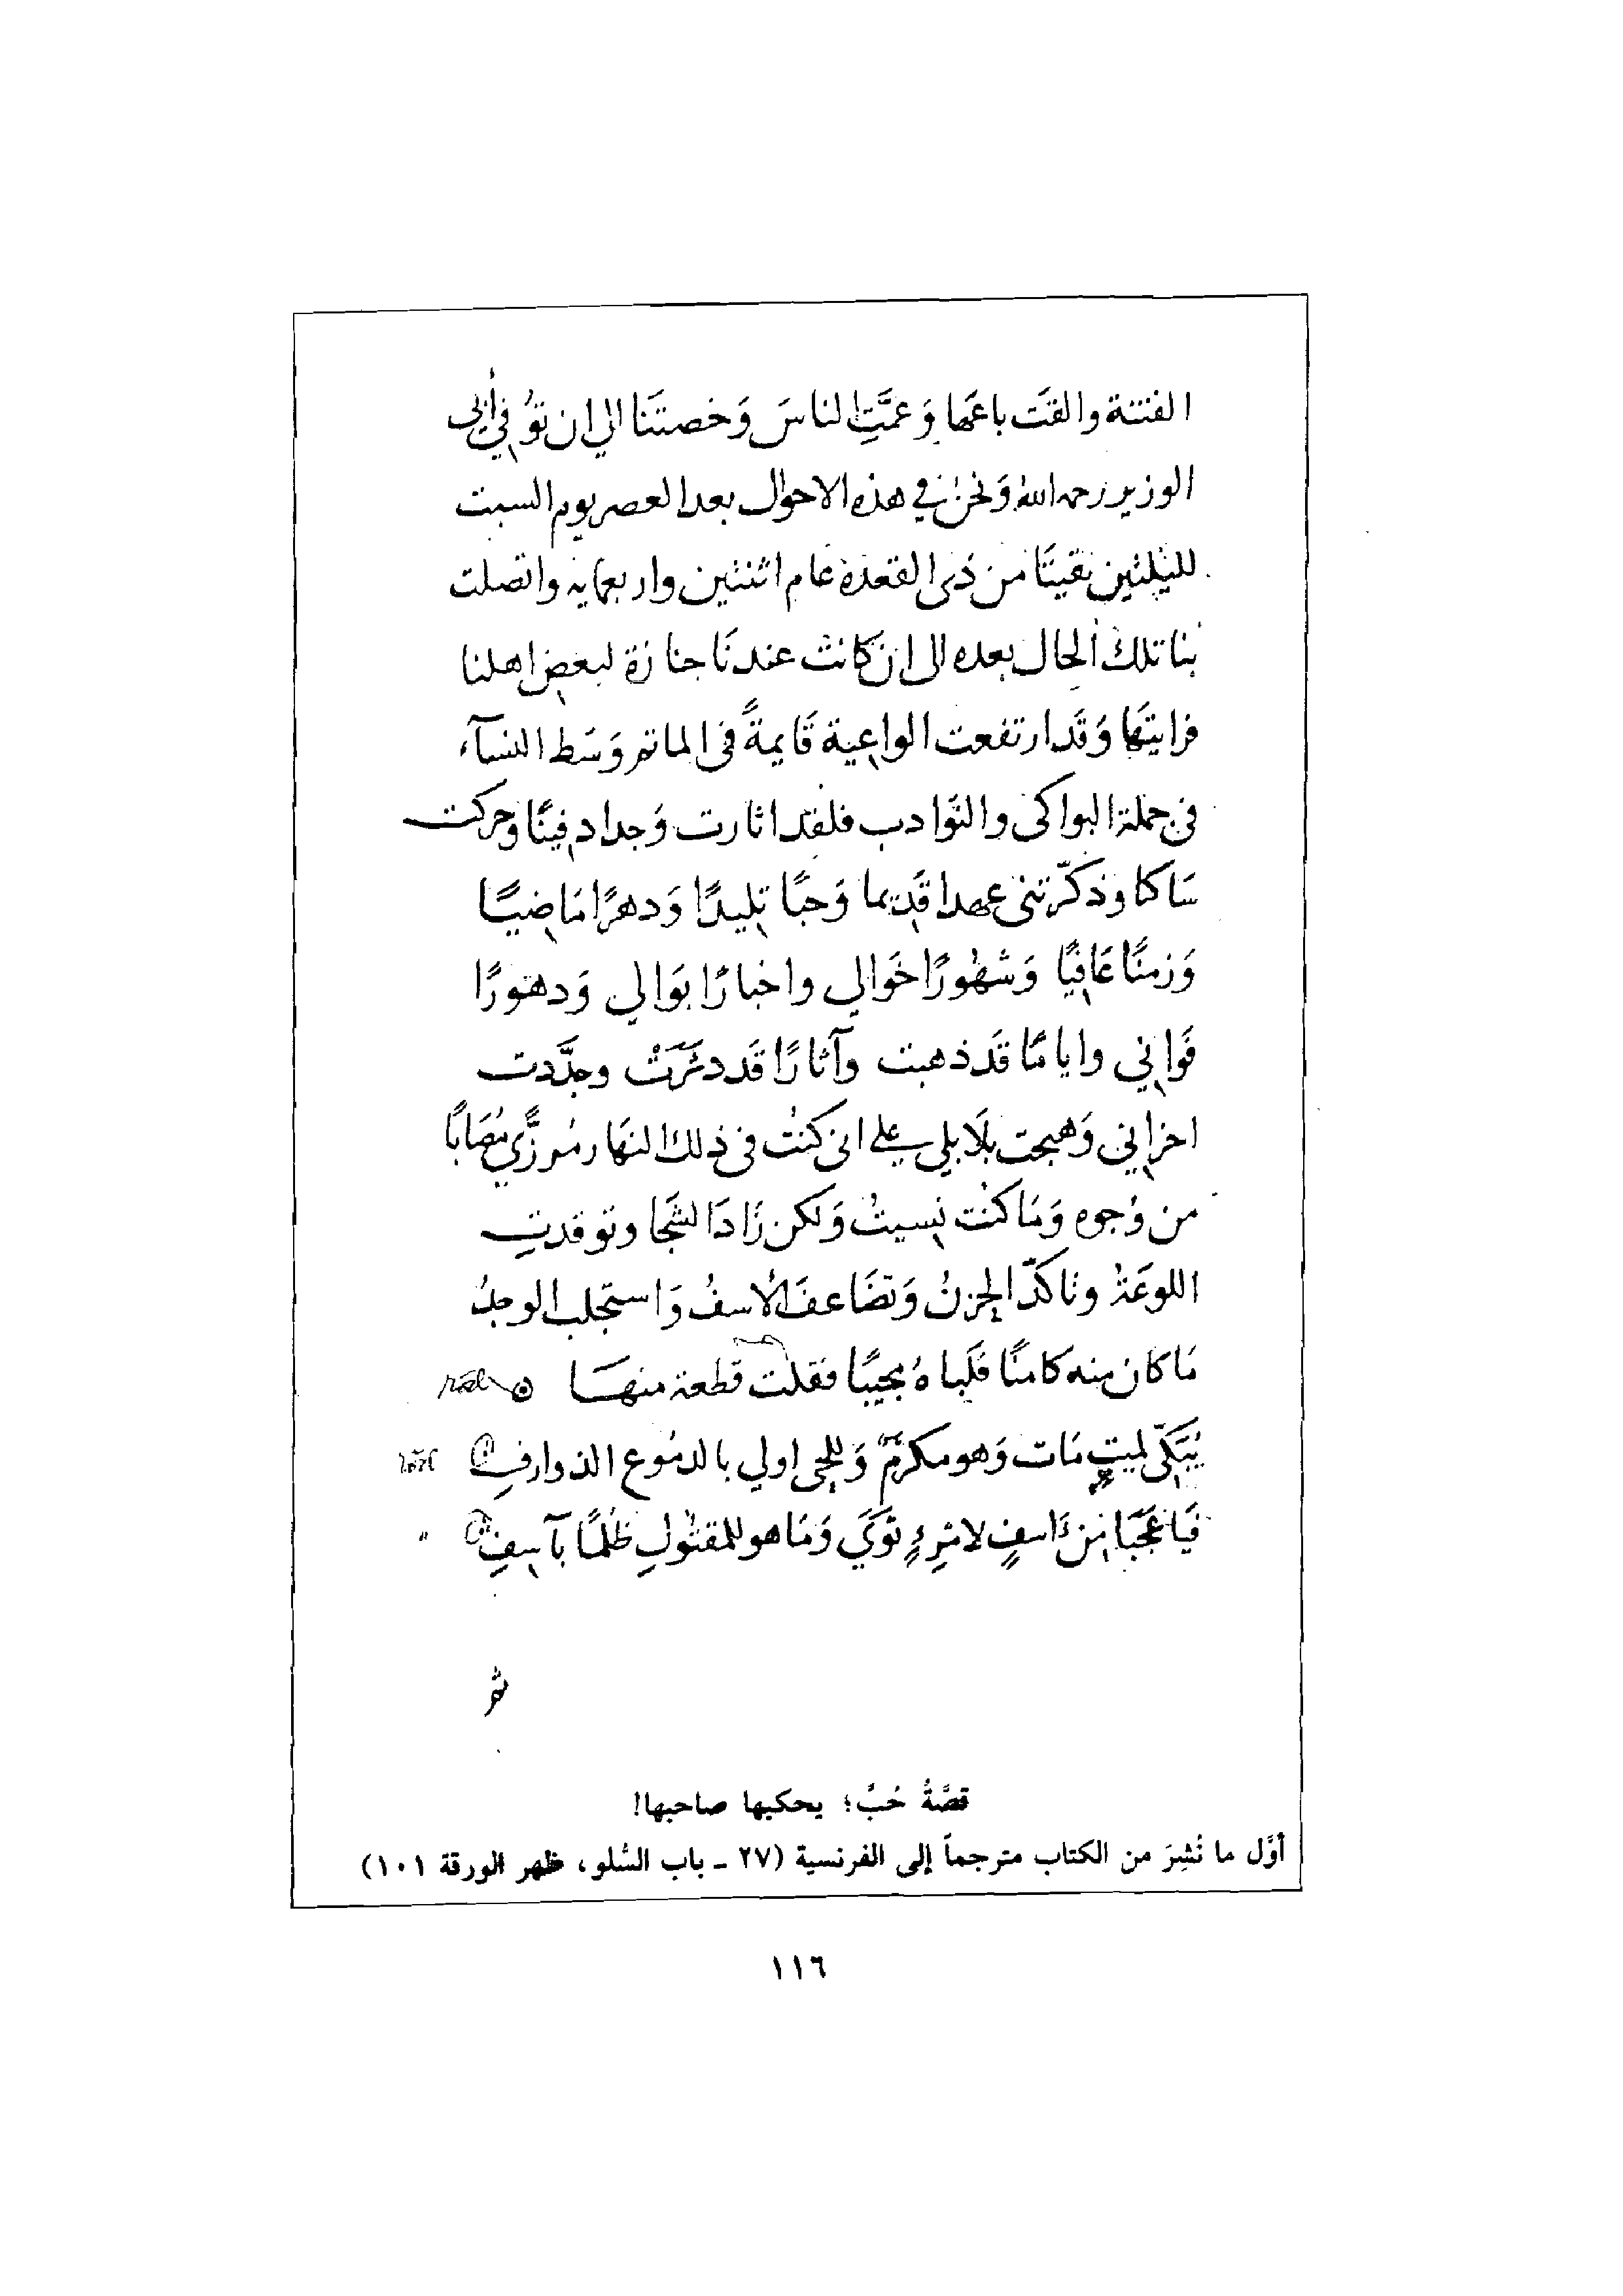 الفتنة والقَت باعَها وَعمَّتِ الناسَ وَخصتَنا الي ان توُفي أبي
الوزير رحمه الله وَنحنُ في هذه الاحوال بعد العصر يوم السبت
لليلتين بقيتَا من ذي القعدة عَام اثنتين واربعمايه واتصلت
بنا تلك الحال بعده الى ان كانت عندنَا جنازة لبعض اهلنا
فرايتهَا وَقَد ارتفعت الواعية قَايمةً في الماتم وَسَط النسآء
في جملة البواكي والنَوادب فلقد اثارت وَجدا دفينًا وحركت
سَاكنا وذكّرتني عهدا قَديما وَحبًا تليدًا وَدهرًا مَاضيًا
وَزمنًا عَافيًا وَشهُورًا خَوالي واخبارًا بوَالي وَدهورًا
فَواني واياما قَد ذهبت وآثارًا قَد دثَرَتْ وجدَّدت
احزاني وَهيجت بلَابلي علي اني كنتُ في ذلك النهَار مُرزَّي مُصَابًا
من وُجوه وَمَا كنت نسيتُ وَلكن زَادَ الشجَا وتوقدتِ
اللوعَةُ وتاكدّ الحِزنُ وَتضَاعفَ الأسفُ وَاستجلب الوجدُ
مَا كان منه كامنًا فلَباهُ مجيبًا فقلت قطعة منهَا
يُبَكّى لميتٍ مَات وَهو مكرمٌ وَللحي اولي بالدمُوع الذوارفِ
فَيَا عَجَبًا مِن ءَاسفٍ لامْرِءٍ ثوَي وَمَا هو للمقتُولِ ظُلمًا بآسفِ
ثم
قصَّةُ حُبٍّ؛ يحكيها صاحبها!
أوَّل ما نُشِرَ من الكتاب مترجماً إلى الفرنسية (٢٧ ـ باب السُلو، ظهر الورقة ١٠١)
١١٦